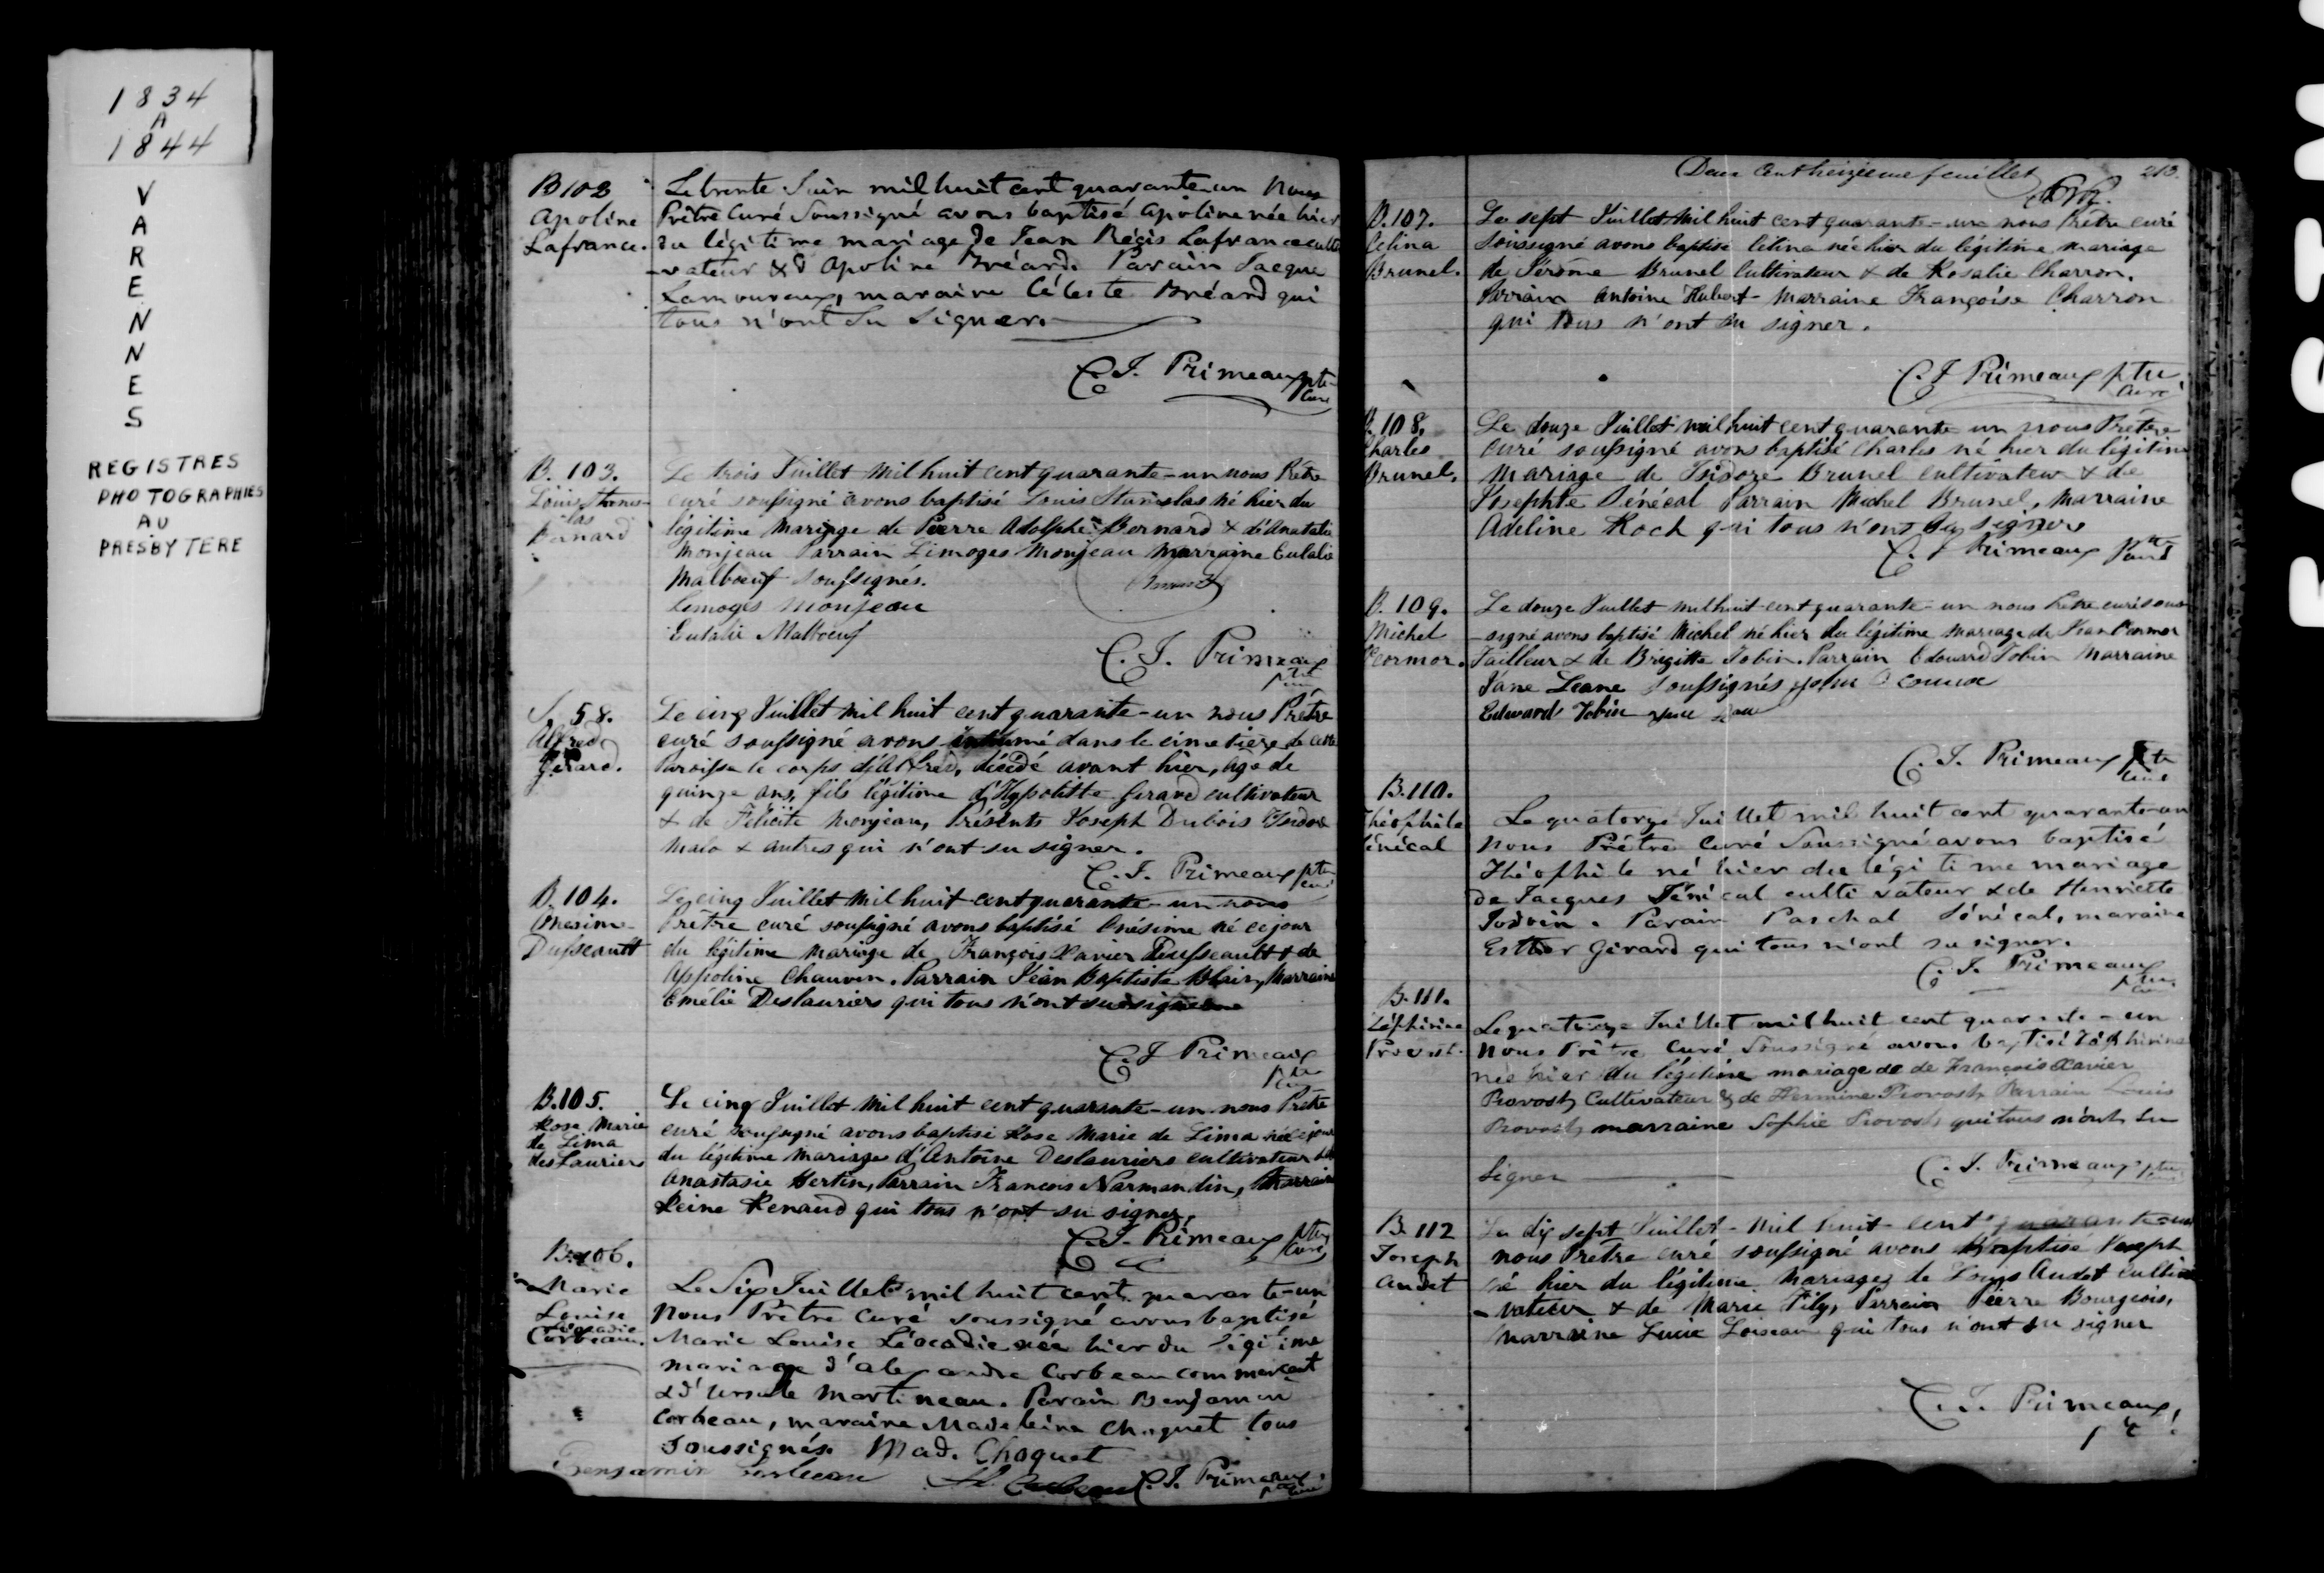 1834
A
1844
V
A
R
E
N
N
E
S
REGISTRES
PHOTOGRAPHIES
AU
PRESBYTERE
B102
Apoline
Lafrance.
Le trente Juin mil huit cent quarante-un Nous
Prêtre Curé Soussigné avons baptisé Apoline née hier
du légitime mariage de Jean Régis Lafrance culti
-vateur & d'Apoline Bréard. Parain Jacque
Lamoureux, maraine Céleste Bréard qui
tous n'ont su signer.
C. J. Primeaux ptre
Curé
B. 103.
Louis Stanis-
las
Bernard
Le trois Juillet mil huit cent quarante-un nous Prêtre
curé soussigné avons baptisé Louis Stanislas né hier du
légitime Mariage de Pierre Adolphe Bernard & d'Anatalie
Monjeau Parrain Limoges Monjeau Marraine Eulalie
Malboeuf soussignés.
Limoges Monjeau
Eulalie Malboeuf
C. J. Primeaux
S. 58.
Alfred
Gerard.
Le cinq Juillet mil huit cent quarante-un nous Prêtre
curé soussigné avons inhumé dans le cimetière de cette
Paroisse le corps d'Alfred, décédé avant hier, âgé de
quinze ans, fils légitime d'Hypolitte Gerard cultivateur
& de Félicité Monjeau, Présents Joseph Dubois Isidore
Malo & autres qui n'ont su signer.
C. J. Primeaux ptre
curé
B. 104.
Onesime
Dusseault
Le cinq Juillet mil huit cent quarante-un nous
Prêtre curé soussigné avons baptisé Onésime né ce jour
du légitime Mariage de François Xavier Dusseault & de
Appoline Chauvin. Parrain Jean Baptiste Blain, Marraine
Emélie Deslauriers qui tous n'ont su signer
C. J. Primeaux
ptre
B. 105.
Rose Marie
de Lima
desLauriers
Le cinq Juillet mil huit cent quarante-un nous Prêtre
curé soussigné avons baptisé Rose Marie de Lima née ce jour
du légitime Mariage d'Antoine Deslauriers cultivateur &
Anastasie Hertin, Parrain François Normandin, Marraine
Reine Renaud qui tous n'ont su signer.
C. J. Primeaux ptre
Curé
B. 106.
Marie
Louise
Léocadie
Corbeau.
Le Six Juillet mil huit cent quarante-un
Nous Prêtre Curé soussigné avons baptisé
Marie Louise Léocadie née hier du légitime
mariage d'Alexandre Corbeau commerçant
& d'Ursule Martineau. Parain Benjamin
Corbeau, maraine Madeleine Choquet tous
soussignés. Mad. Choquet
Benjamin Corbeau C. J. Primeaux
Deux Cent treizieme feuillet 213.
B. 107.
Celina
Brunel.
Le sept Juillet mil huit cent quarante-un nous Prêtre curé
soussigné avons baptisé Celina née hier du légitime mariage
de Jérôme Brunel Cultivateur & de Rosalie Charron.
Parrain Antoine Hubert Marraine Françoise Charron
qui tous n'ont su signer.
C. J Primeaux ptre
Curé
B. 108.
Charles
Brunel.
Le douze Juillet mil huit cent quarante un nous Prêtre
curé soussigné avons baptisé Charles né hier du légitime
Mariage de Isidore Brunel cultivateur & de
Josephte Sénécal Parrain Michel Brunel, Marraine
Adeline Roch qui tous n'ont su signer
C. J Primeaux
B. 109.
Michel
Connor.
Le douze Juillet mil huit cent quarante-un nous Prêtre curé sous-
-signé avons baptisé Michel né hier du légitime Mariage de Jean Connor
Tailleur & de Brigitte Tobin. Parrain Edouard Tobin Marraine
Jane Leane soussignés John
Edward Tobin
C. J. Primeaux ptre
Curé
B. 110.
Théophile
Sénécal
Le quatorze Juillet mil huit cent quarante-un
Nous Prêtre Curé Soussigné avons baptisé
Théophile né hier du légitime mariage
de Jacques Sénécal cultivateur & de Henriette
Jodoin. Parain Paschal Sénécal, maraine
Esther Gerard qui tous n'ont su signer.
C. J. Primeaux
ptre
B. 111.
Zéphirine
Provost.
Le quatorze Juillet mil huit cent quarante-un
Nous Prêtre Curé Soussigné avons baptisé Zéphirine
née hier du légitime mariage de de François Xavier
Provost Cultivateur & de Hermine Provost, Parrain Louis
Provost, marraine Sophie Provost qui tous n'ont su
signer
C. J. Primeaux ptre
B. 112
Joseph
Audet
Le dix sept Juillet mil huit cent quarante-un
nous Prêtre curé soussigné avons baptisé Joseph
né hier du légitime Mariage de Louis Audet culti
-vateur & de Marie Pily, Parrain Pierre Bourgeois,
Marraine Lucie Loiseau qui tous n'ont su signer
C. J. Primeaux